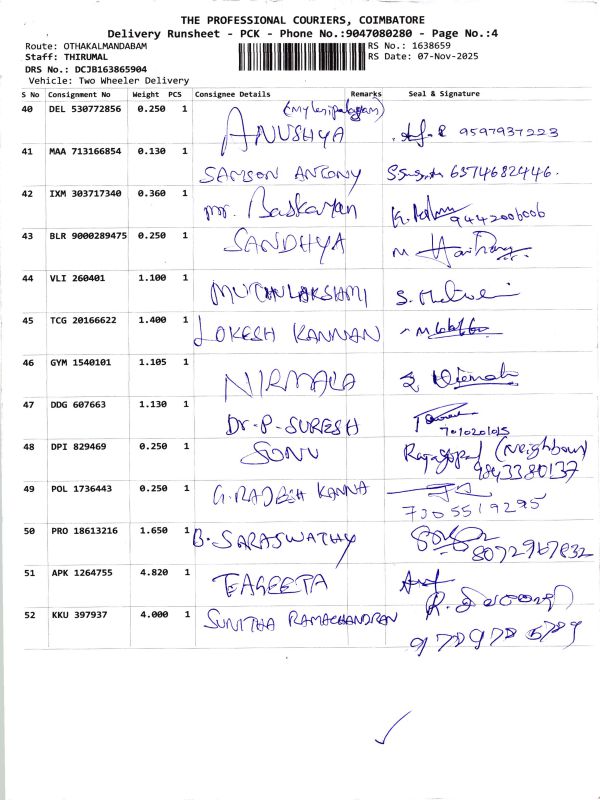 THE PROFESSIONAL COURIERS, COIMBATORE
Delivery Runsheet - PCK - Phone No.:9047080280 - Page No.:4
Route: OTHAKALMANDABAM RS No.: 1638659
Staff: THIRUMAL RS Date: 07-Nov-2025
DRS No.: DCJB163865904
Vehicle: Two Wheeler Delivery
S No Consignment No Weight PCS Consignee Details Remarks Seal & Signature
40 DEL 530772856 0.250 1 ANUSHYA 9597937223
41 MAA 713166854 0.130 1 SAMSON ANTONY 6574682446.
42 IXM 303717340 0.360 1 Mr. Baskaran 9442006006
43 BLR 9000289475 0.250 1 SANDHYA
44 VLI 260401 1.100 1 MUTHULAKSHMI
45 TCG 20166622 1.400 1 LOKESH KANNAN
46 GYM 1540101 1.105 1 NIRMALA
47 DDG 607663 1.130 1 Dr-P-SURESH
48 DPI 829469 0.250 1 SONU Rajagopal (Neighbour) 9843380137
49 POL 1736443 0.250 1 G.RAJESH KANNA 7305519295
50 PRO 18613216 1.650 1 B.SARASWATHY 8072967832
51 APK 1264755 4.820 1
52 KKU 397937 4.000 1 SUNITHA RAMACHANDRAN